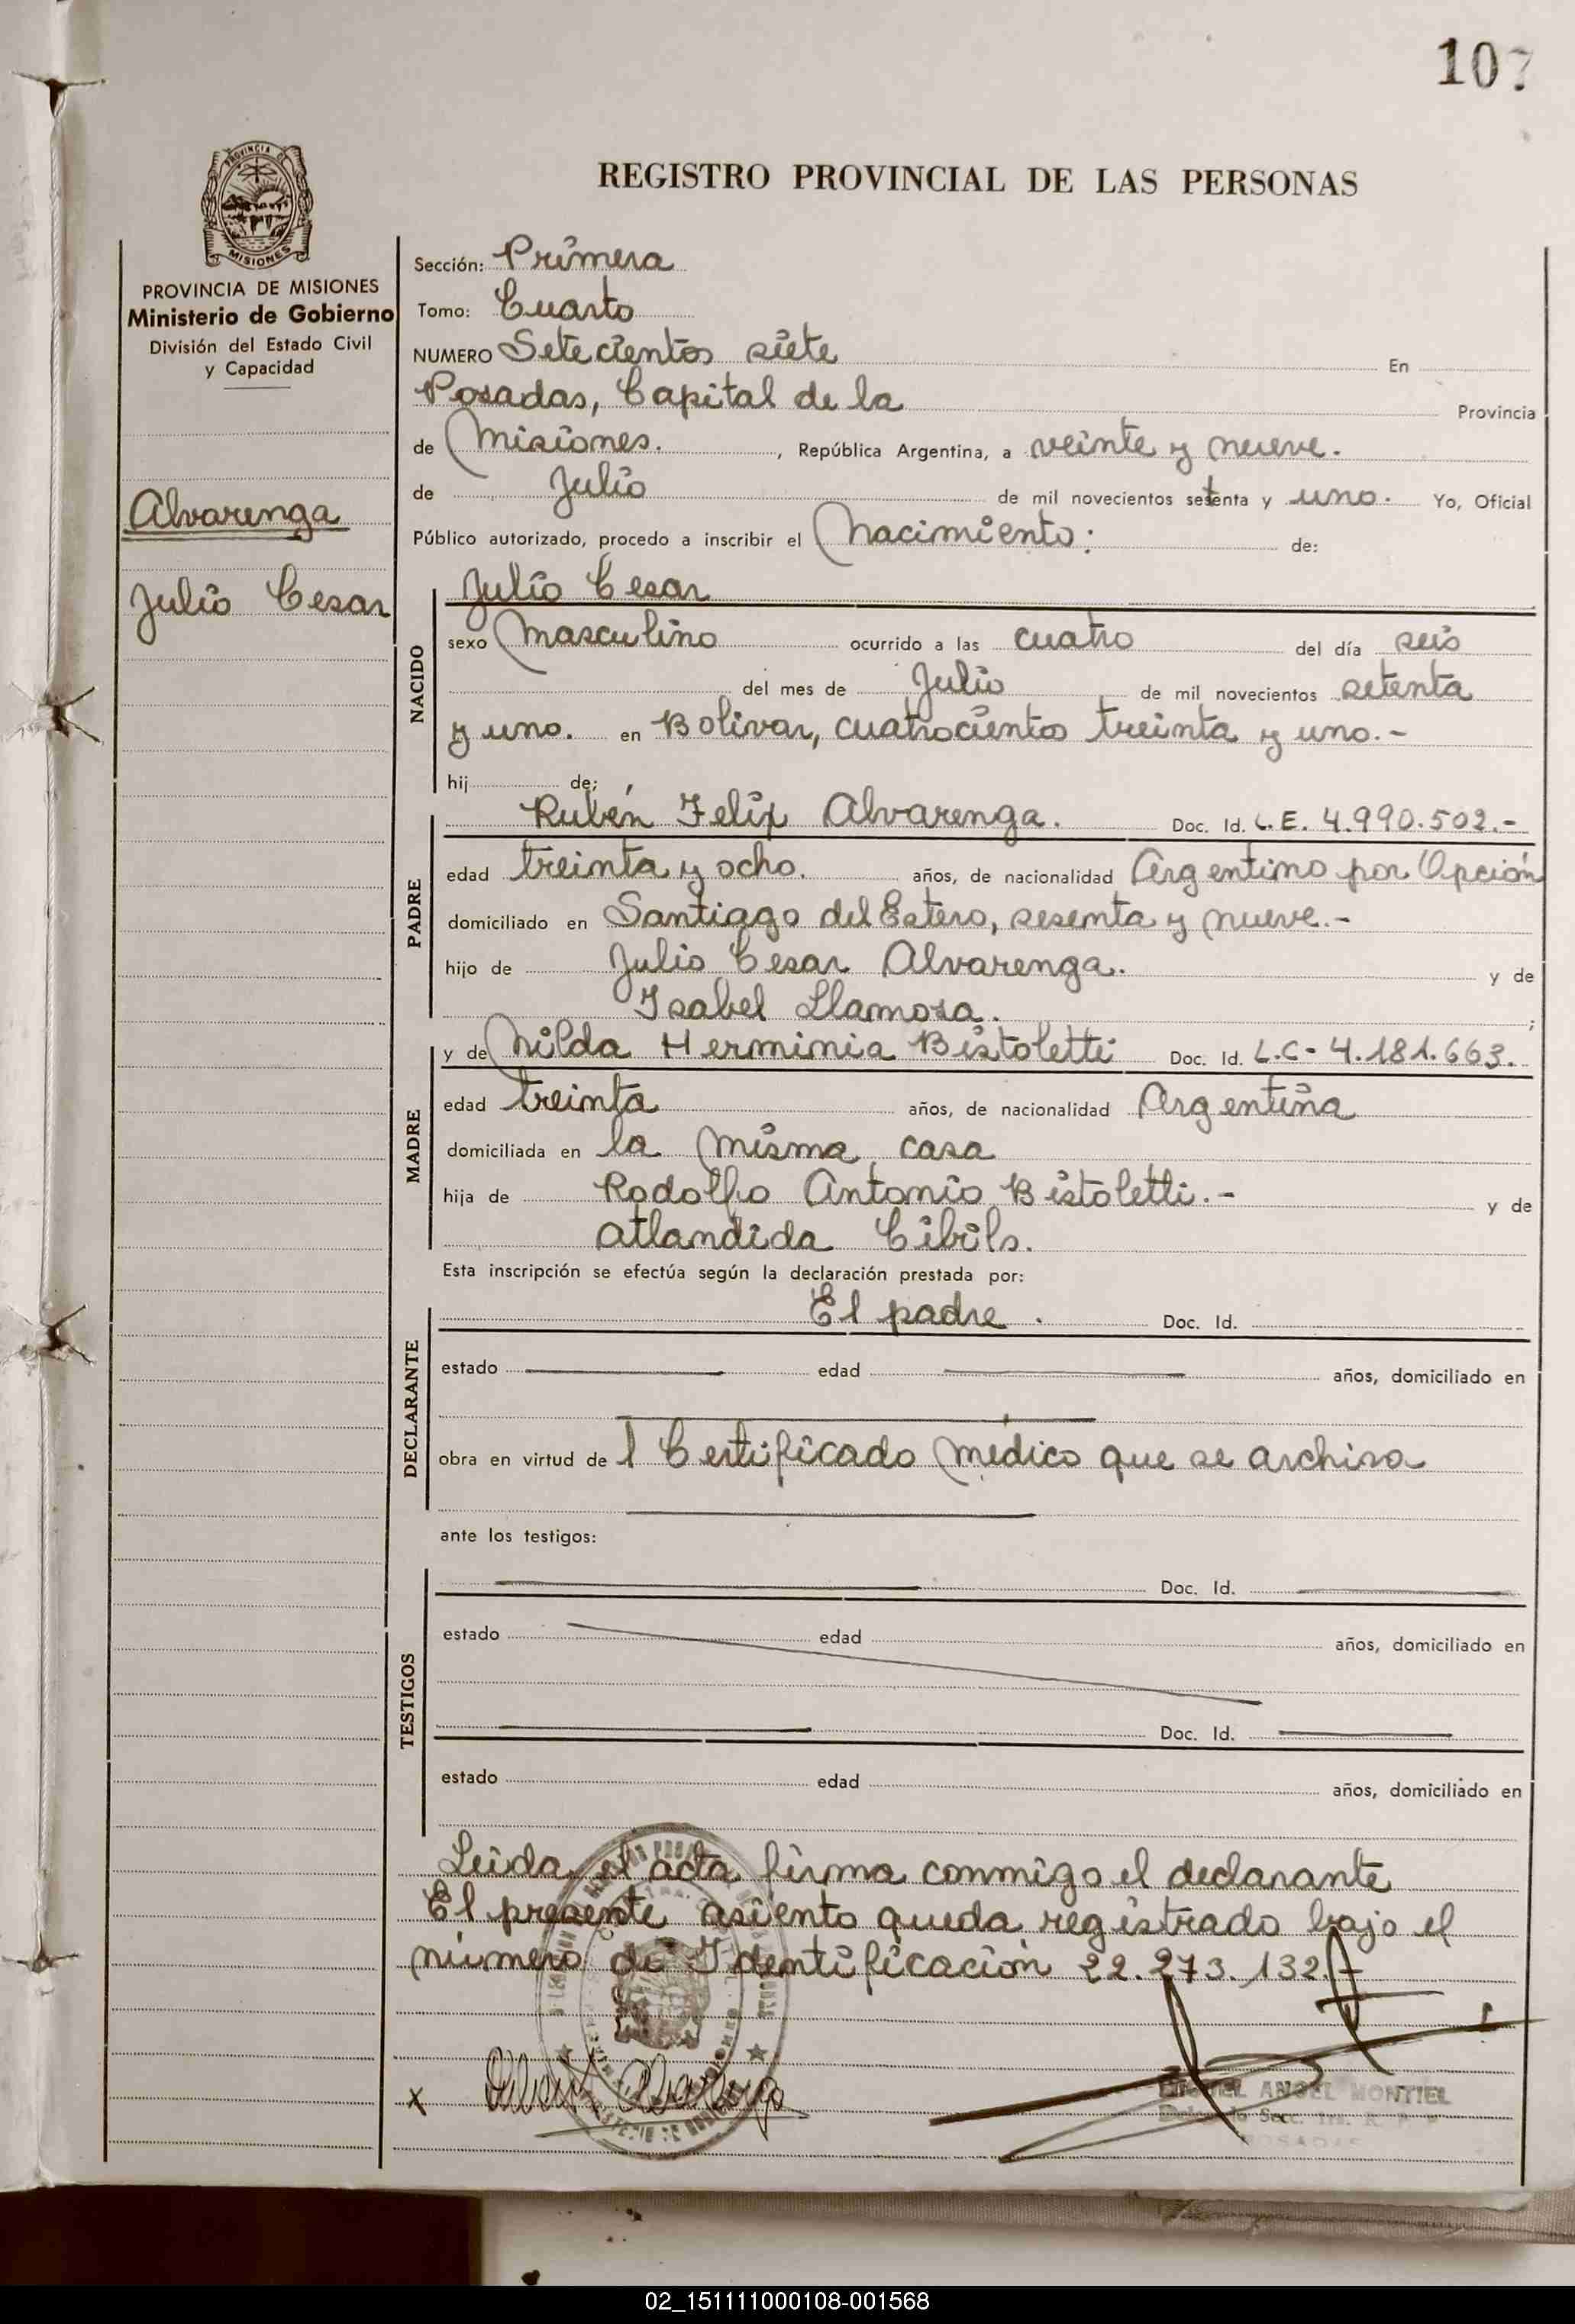 107
PROVINCIA DE
MISIONES
REGISTRO PROVINCIAL DE LAS PERSONAS
PROVINCIA DE MISIONES
Ministerio de Gobierno
División del Estado Civil
y Capacidad
Alvarenga
Julio Cesar
Sección: Primera
Tomo: Cuarto
NUMERO Setecientos siete En
Posadas, Capital de la Provincia
de Misiones. , República Argentina, a veinte y nueve.
de Julio de mil novecientos setenta y uno. Yo, Oficial
Público autorizado, procedo a inscribir el Nacimiento: de:
NACIDO
Julio Cesar
sexo Masculino ocurrido a las cuatro del día seis
del mes de Julio de mil novecientos setenta
y uno. en Bolivar, cuatrocientos treinta y uno.-
hij de:
PADRE
Rubén Felix Alvarenga. Doc. Id. L.E. 4.990.502.-
edad treinta y ocho. años, de nacionalidad Argentino por Opción
domiciliado en Santiago del Estero, sesenta y nueve.-
hijo de Julio Cesar Alvarenga. y de
Isabel Llamosa. ;
MADRE
y de Nilda Herminia Bistoletti Doc. Id. L.C- 4.181.663.
edad treinta años, de nacionalidad Argentina
domiciliada en la misma casa
hija de Rodolfo Antonio Bistoletti.- y de
Atlandida Cibils.
Esta inscripción se efectúa según la declaración prestada por:
DECLARANTE
El padre . Doc. Id.
estado edad años, domiciliado en
obra en virtud de l Certificado medico que se archiva
ante los testigos:
TESTIGOS
Doc. Id.
estado edad años, domiciliado en
Doc. Id.
estado edad años, domiciliado en
Leida el acta firma conmigo el declarante
El presente asiento queda registrado bajo el
número de Identificación 22.273.132.-
x
MIGUEL ANGEL MONTIEL
POSADAS
02_151111000108-001568